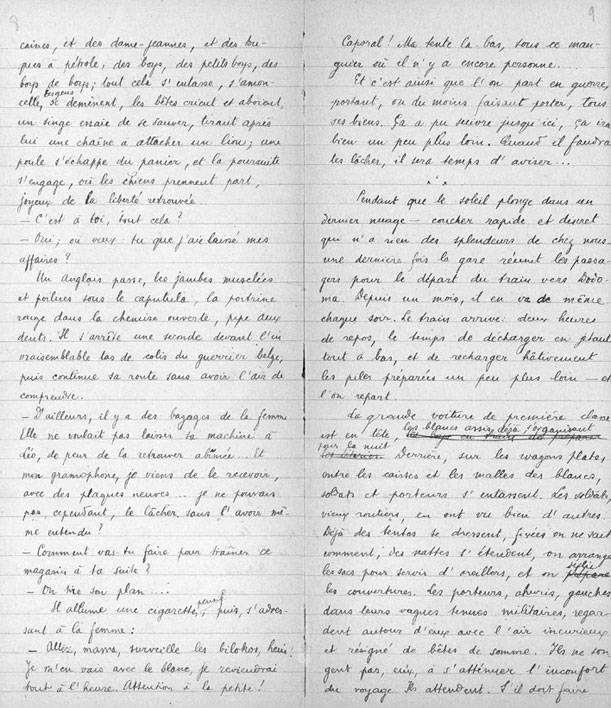 8
caines, et des dame-jeannes, et des tou-
ques à pétrole, des boys, des petits boys, des
boys de boys; tout cela s'entasse, s'amon-
celle, les gens se démènent, les bêtes crient et aboient,
un singe essaie de se sauver, tirant après
lui une chaîne à attacher un lion; une
poule s'échappe du panier, et la poursuite
s'engage, où les chiens prennent part,
joyeux de la liberté retrouvée.
– C'est à toi, tout cela ?
– Oui; où veux-tu que j'aie laissé mes
affaires ?
Un Anglais passe, les jambes musclées
et poilues sous le capitula, la poitrine
rouge dans la chemise ouverte, pipe aux
dents. Il s'arrête une seconde devant l'in
vraisemblable tas de colis du guerrier belge,
puis continue sa route sans avoir l'air de
comprendre.
– D'ailleurs, il y a des bagages de la femme
Elle ne voulait pas laisser sa machine à
Léo, de peur de la retrouver abîmée... Et
mon gramophone, je viens de le recevoir,
avec des plaques neuves... je ne pouvais
pas, cependant, le lâcher, sans l'avoir mê-
me entendu ?
– Comment vas-tu faire pour traîner ce
magasin à ta suite ?
– On tire son plan....
Il allume une cigarette, pensif, puis, s'adres-
sant à la femme :
– Allez, mama, surveille les bilokos, hein!
Je m'en vais avec le blanc, je reviendrai
tout à l'heure. Attention à la petite !
9
Caporal ! Ma tente là bas, sous ce man-
guier où il n'y a encore personne....
Et c'est ainsi que l'on part en guerre,
portant, ou du moins faisant porter, tous
ses biens. Ça a pu suivre jusqu'ici, ça ira
bien un peu plus loin. Quand il faudra
les lâcher, il sera temps d'aviser...
* *
Pendant que le soleil plonge dans un
dernier nuage – coucher rapide et discret
qui n'a rien des splendeurs de chez nous
une dernière fois la gare réunit les passa-
gers pour le départ du train vers Dodo-
ma. Depuis un mois, il en va de même
chaque soir. Le train arrive: deux heures
de repos, le temps de décharger en jetant
tout à bas, et de recharger hâtivement
les piles préparées un peu plus loin – et
l'on repart.
La grande voiture de première classe
est en tête, les blancs assis déjà s'organisant
pour la nuit. Derrière, sur les wagons plats,
entre les caisses et les malles des blancs,
soldats et porteurs s'entassent. Les soldats,
vieux routiers, en ont vu bien d'autres.
Déjà des tentes se dressent, fixées on ne sait
comment; des nattes s'étendent, on arrange
les sacs pour servir d'oreillers, et on déplie
les couvertures. Les porteurs, ahuris, gauches
dans leurs vagues tenues militaires, regar-
dent autour d'eux avec l'air incurieux
et résigné de bêtes de somme. Ils ne son
gent pas, eux, à s'atténuer l'inconfort
du voyage. Ils attendent. S'il doit faire